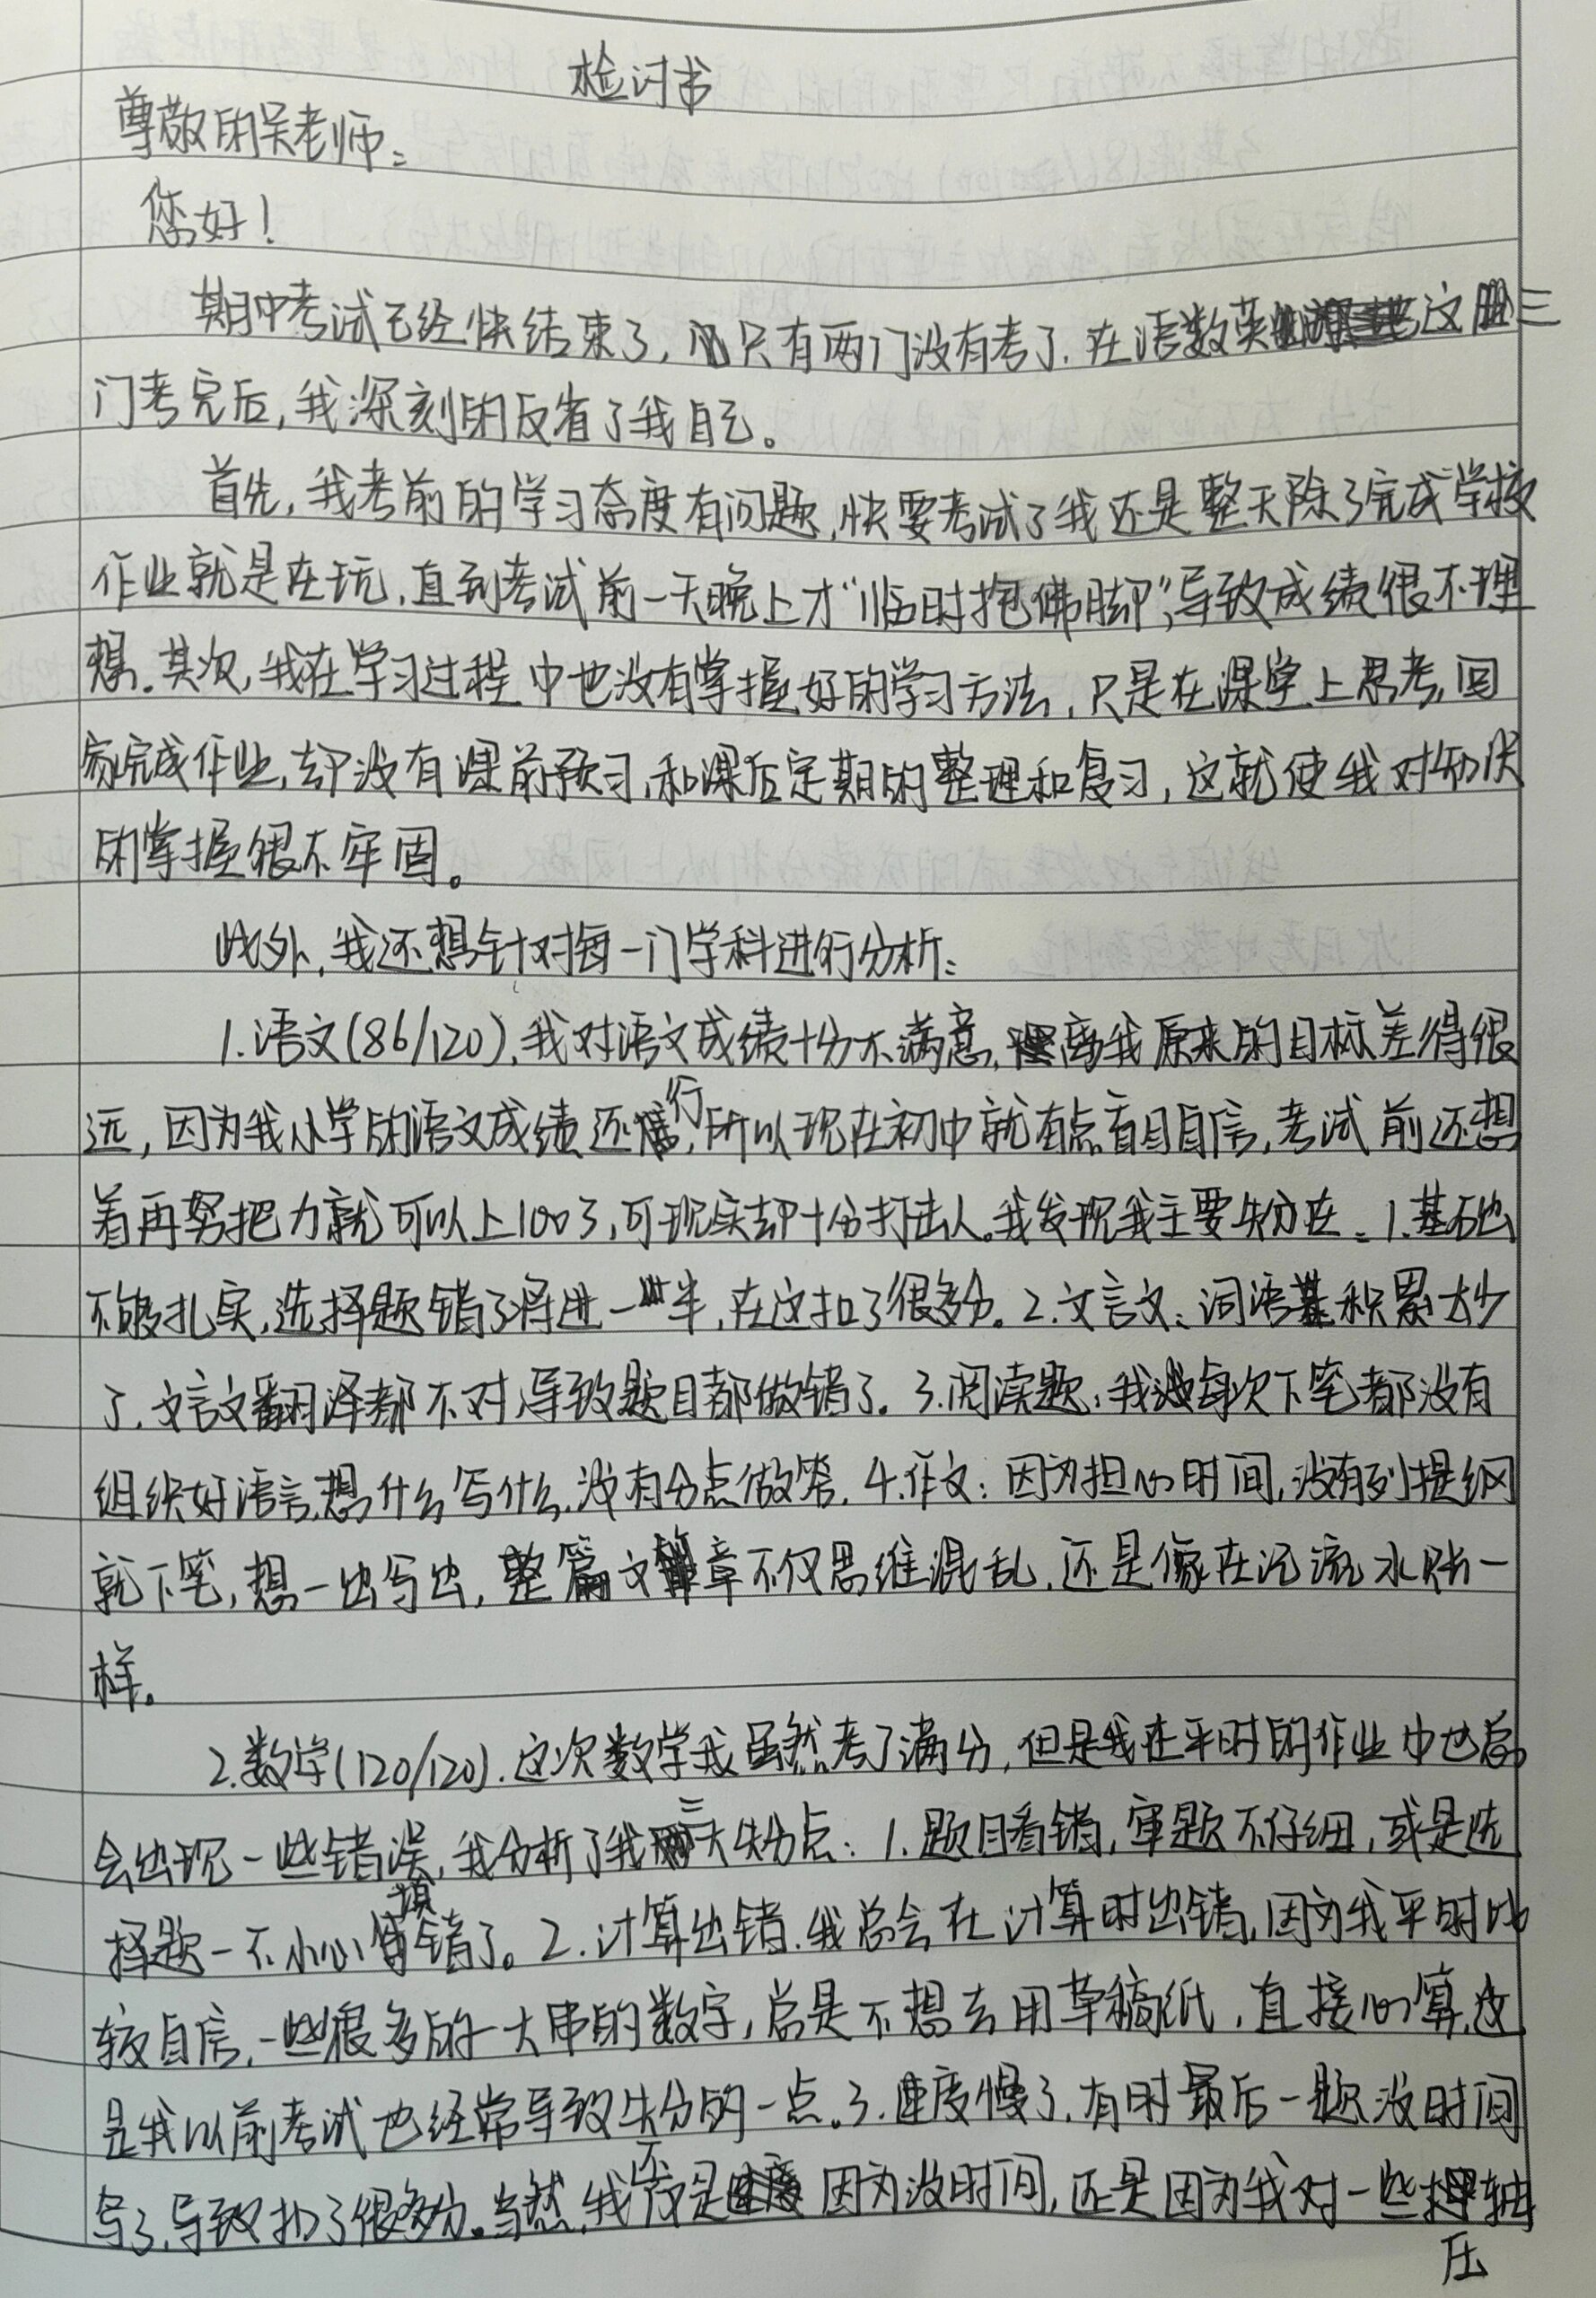 检讨书
尊敬的吴老师:
您好!
期中考试已经快结束了,只有两门没有考了.在语数英这三
门考完后,我深刻的反省了我自己。
首先,我考前的学习态度有问题,快要考试了我还是整天除了完成学校
作业就是在玩,直到考试前一天晚上才“临时抱佛脚”,导致成绩很不理
想.其次,我在学习过程中也没有掌握好的学习方法,只是在课堂上思考,回
家完成作业,却没有课前预习,和课后定期的整理和复习,这就使我对知识
的掌握很不牢固。
此外,我还想针对每一门学科进行分析:
1.语文(86/120).我对语文成绩十分不满意,离我原来的目标差得很
远,因为我小学的语文成绩还行,所以现在初中就有点盲目自信,考试前还想
着再努把力就可以上100了,可现实却十分打击人。我发现我主要失分在:1.基础
不够扎实,选择题错了将进一半,在这扣了很多分。2.文言文:词语积累太少
了.文言文翻译都不对,导致题目都做错了。3.阅读题:我每次下笔都没有
组织好语言,想什么写什么,没有分点做答.4.作文:因为担心时间,没有列提纲
就下笔,想一出写出,整篇文章不仅思维混乱,还是像在记流水账一
样。
2.数学(120/120).这次数学我虽然考了满分,但是我在平时的作业中也总
会出现一些错误,我分析了我三大失分点:1.题目看错,审题不仔细,或是选
择题一不小心填错了。2.计算出错.我总会在计算时出错,因为我平时比
较自信,一些很多的一大串的数字,总是不想去用草稿纸,直接心算,这
是我以前考试也经常导致失分的一点。3.速度慢了.有时最后一题没时间
写了,导致扣了很多分。当然,我不是因为没时间,还是因为我对一些压轴